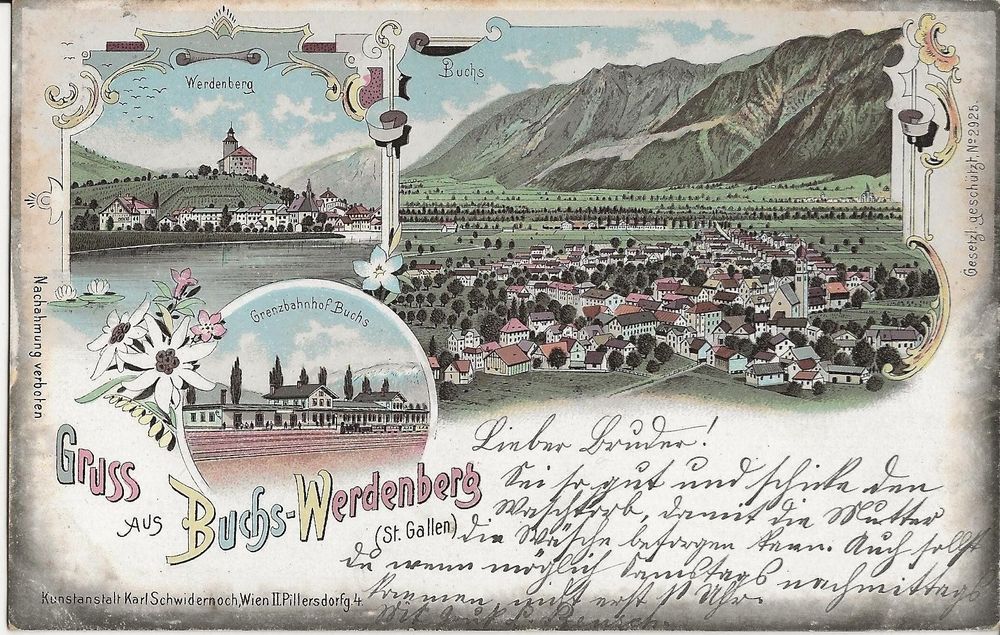 Werdenberg
Buchs
Gesetzl. geschützt No 2925.
Nachahmung verboten
Grenzbahnhof Buchs
Gruss
aus
Buchs-Werdenberg
(St. Gallen)
Lieber Bruder!
Sei so gut und schicke den
Waschkorb, damit die Mutter
die Wäsche besorgen kann. Auch sollst
du wenn möglich Samstags nachmittags
kommen nicht erst Uhr.
Mit
Kunstanstalt Karl Schwidernoch, Wien II. Pillersdorfg. 4.